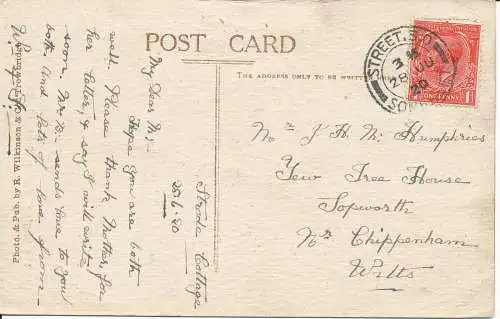 POST CARD
THE ADDRESS ONLY TO BE WRITTEN
Photo. & Pub. by R. Wilkinson & Co., Trowbridge.
STREET. S.O
28 JU
20
SOM
ONE PENNY
Strode Cottage
25.6.20
My Dear M,
Hope you are both
well. Please thank Mother, for
her letter, & say I will write
soon, Mrs B. sends love to you
both, and lots of love from
J. H. M. Humphries
Yew Tree House
Sopworth
Nr Chippenham
Wilts